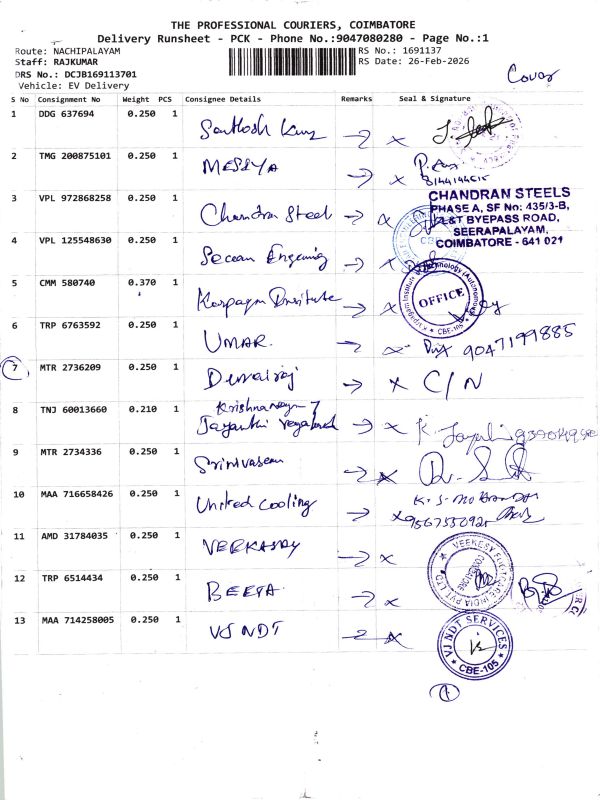 THE PROFESSIONAL COURIERS, COIMBATORE
Delivery Runsheet - PCK - Phone No.:9047080280 - Page No.:1
Route: NACHIPALAYAM RS No.: 1691137
Staff: RAJKUMAR RS Date: 26-Feb-2026
DRS No.: DCJB169113701
Vehicle: EV Delivery
Cover
S No Consignment No Weight PCS Consignee Details Remarks Seal & Signature
1 DDG 637694 0.250 1 Santhosh
2 TMG 200875101 0.250 1 MESSYA
3 VPL 972868258 0.250 1 Chandran Steel
CHANDRAN STEELS
PHASE A, SF No: 435/3-B,
L&T BYEPASS ROAD,
SEERAPALAYAM,
COIMBATORE - 641 021
4 VPL 125548630 0.250 1
5 CMM 580740 0.370 1 Karpagam Institute
OFFICE
CBE-105
6 TRP 6763592 0.250 1 UMAR 9047199885
7 MTR 2736209 0.250 1 Durairaj C/N
8 TNJ 60013660 0.210 1 Krishnaveny
Jayanthi K. Jayanthi
9 MTR 2734336 0.250 1 Srinivasan
10 MAA 716658426 0.250 1 United Cooling
11 AMD 31784035 0.250 1 VEEKASAY
12 TRP 6514434 0.250 1 BEETA
13 MAA 714258005 0.250 1 VJ NDT
VJ NDT SERVICES
CBE-105